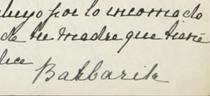 luyo por lo incomodo
de tu madre que tiene
Barbarita